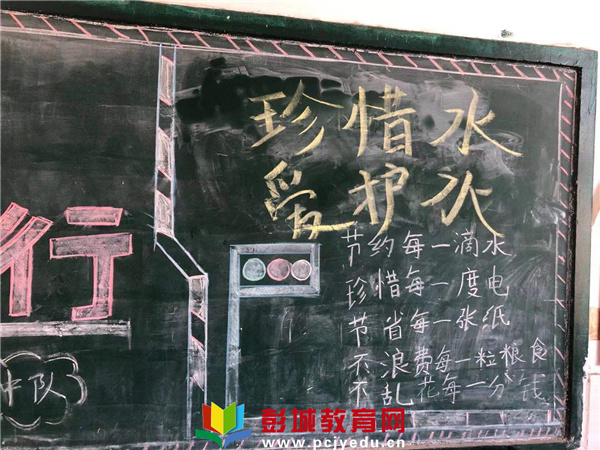 行
中队
珍惜水
爱护水
节约每一滴水
珍惜每一度电
节省每一张纸
不浪费每一粒粮食
不乱花每一分钱
彭城教育网
www.pcjyedu.cn